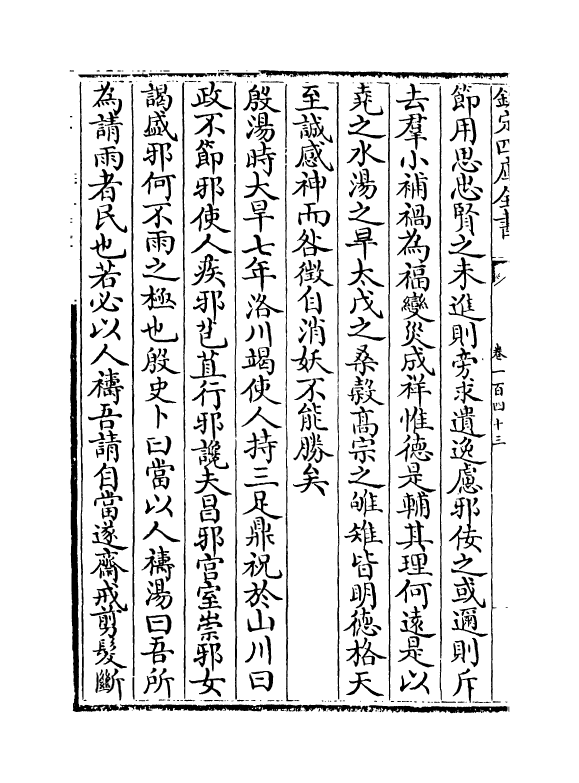 欽定四庫全書
卷一百四十三
節用思忠賢之未進則旁求遺逸慮邪佞之或邇則斥
去羣小補禍為福變災成祥惟德是輔其理何遠是以
堯之水湯之旱太戊之桑榖高宗之雊雉皆明德格天
至誠感神而咎徵自消妖不能勝矣
殷湯時大旱七年洛川竭使人持三足鼎祝於山川曰
政不節邪使人疾邪苞苴行邪讒夫昌邪官室崇邪女
謁盛邪何不雨之極也殷史卜曰當以人禱湯曰吾所
為請雨者民也若必以人禱吾請自當遂齋戒剪髮斷